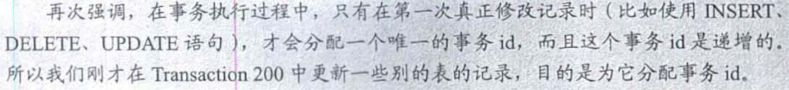 再次强调，在事务执行过程中，只有在第一次真正修改记录时（比如使用 INSERT、
DELETE、UPDATE 语句），才会分配一个唯一的事务 id，而且这个事务 id 是递增的。
所以我们刚才在 Transaction 200 中更新一些别的表的记录，目的是为它分配事务 id。